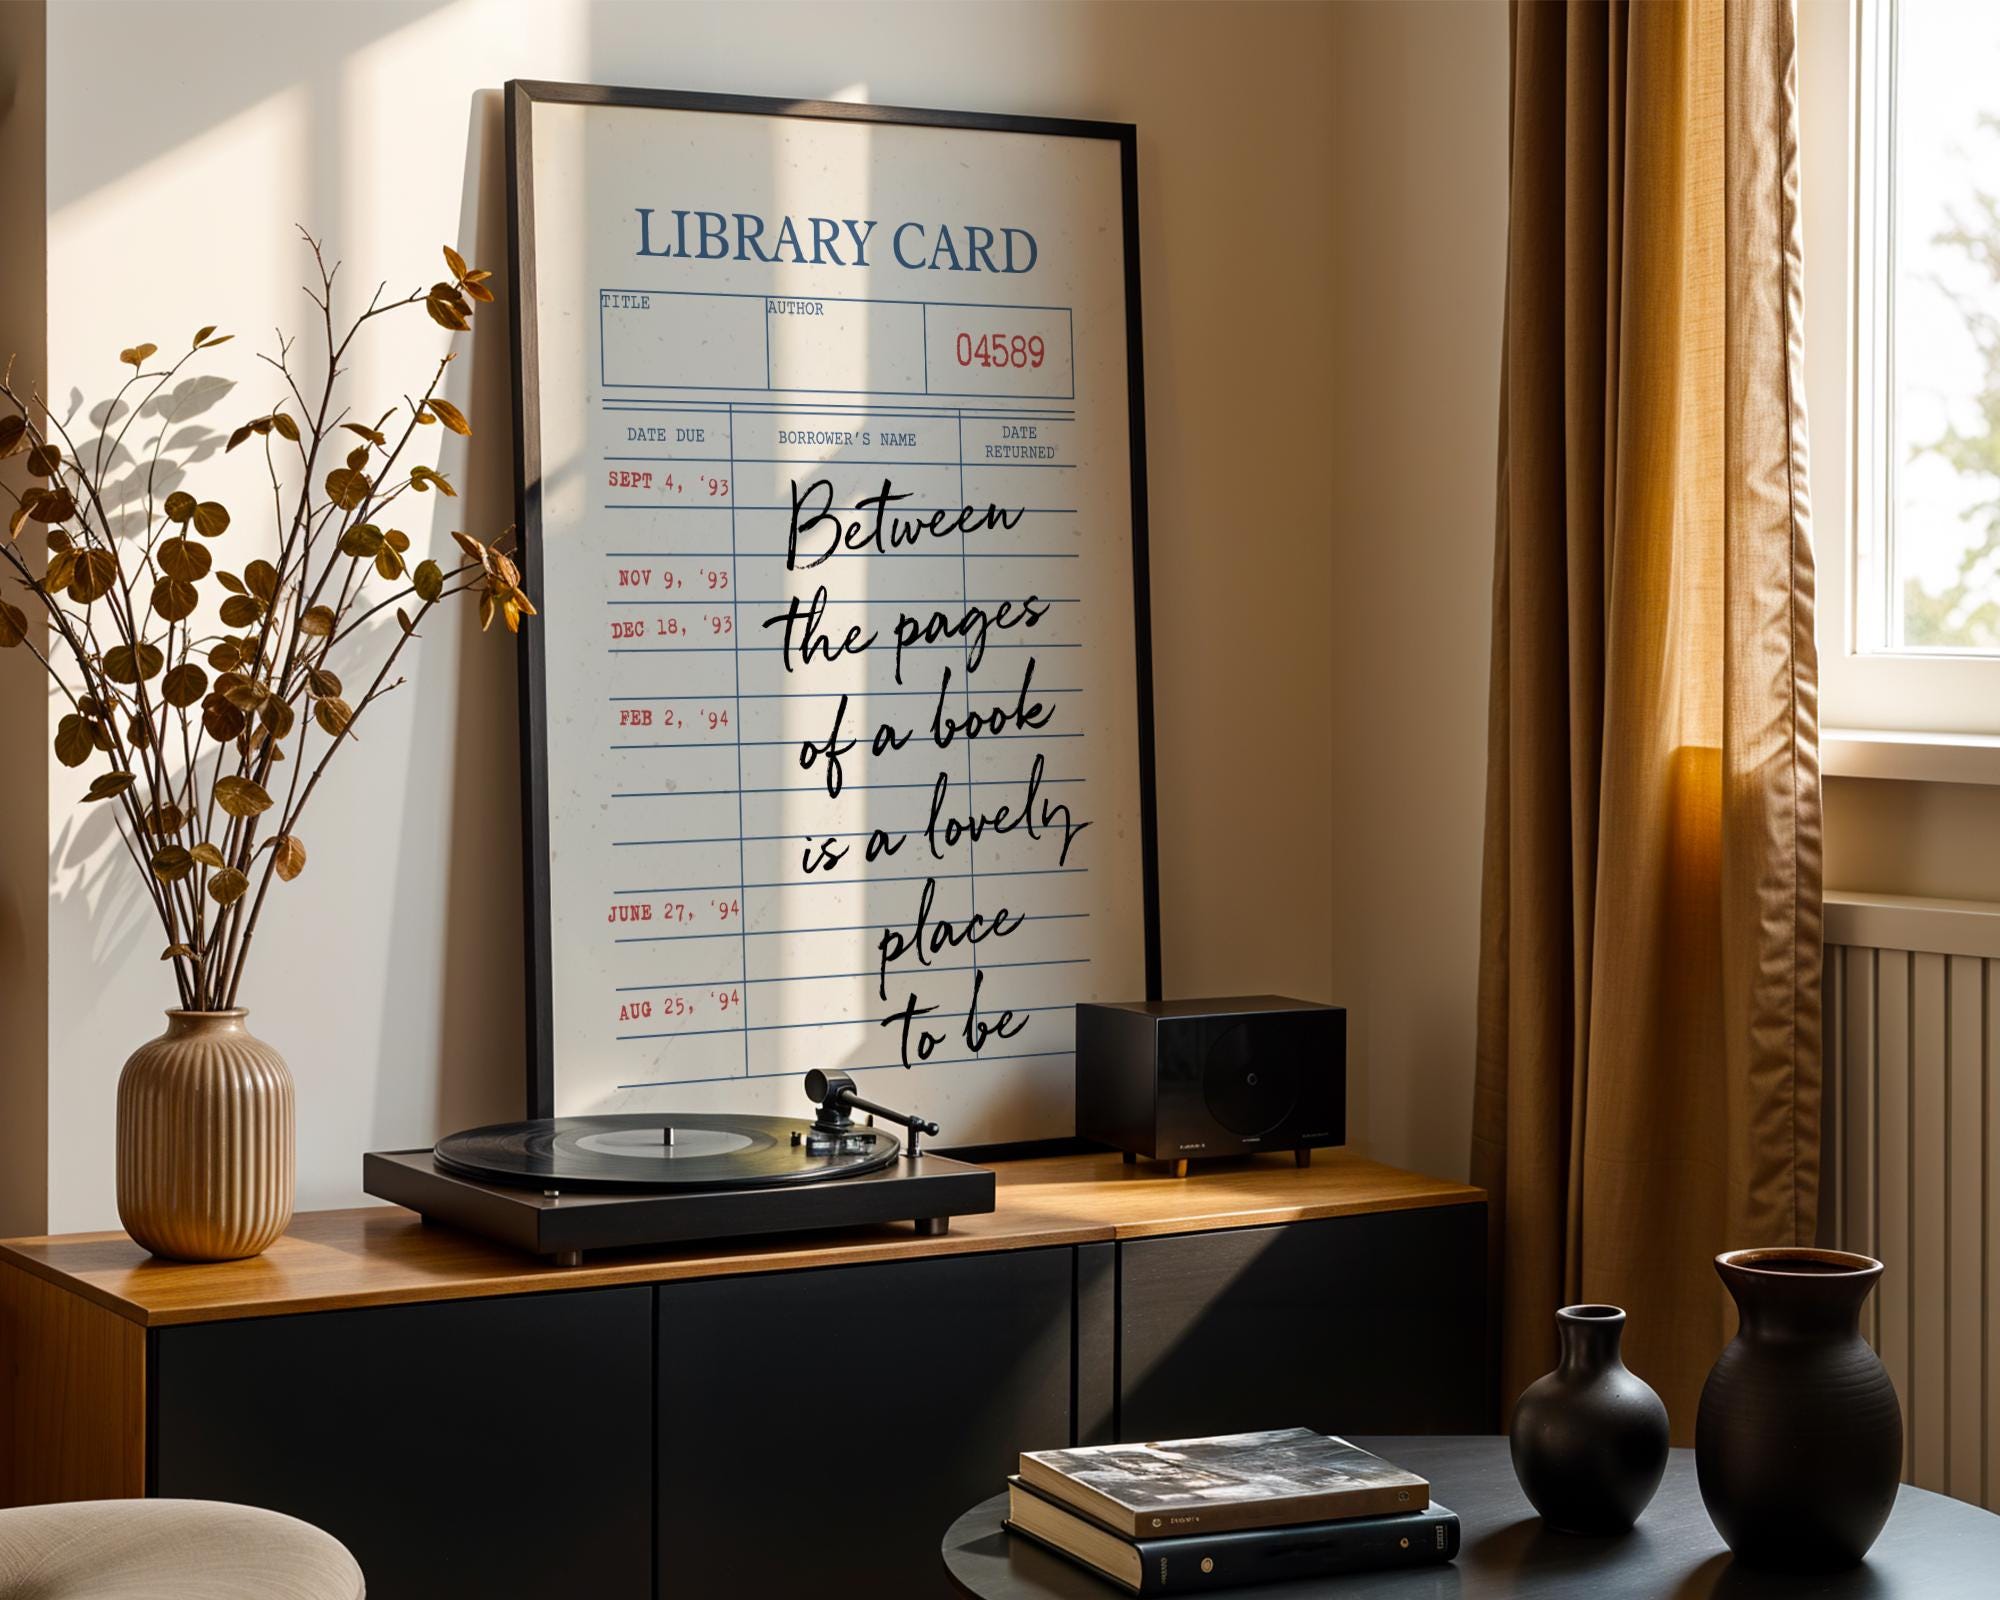 LIBRARY CARD
TITLE
AUTHOR
04589
DATE DUE
BORROWER'S NAME
DATE
RETURNED
SEPT 4, '93
NOV 9, '93
DEC 18, '93
FEB 2, '94
JUNE 27, '94
AUG 25, '94
Between
the pages
of a book
is a lovely
place
to be